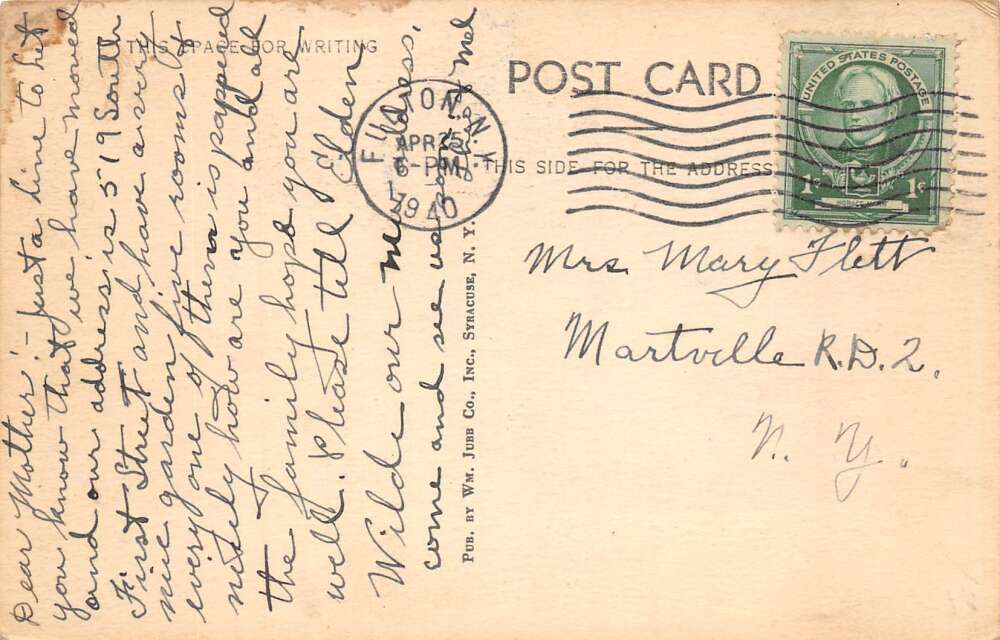 THIS SPACE FOR WRITING
Dear Mother:- Just a line to let
you know that we have moved
and our address is 519 South
First Street and have a very
nice garden five rooms &
every one of them is papered
nicely how are you and all
the family hope you are
well. Please tell Elden
Wilde our address.
come and see us
Mel
PUB. BY WM. JUBB CO., INC., SYRACUSE, N. Y.
POST CARD
THIS SIDE FOR THE ADDRESS
FULTON N.Y.
APR 25
6-PM
1940
UNITED STATES POSTAGE
1¢ 1¢
HORACE MANN
Mrs. Mary Flett
Martville R.D.2.
N. Y.